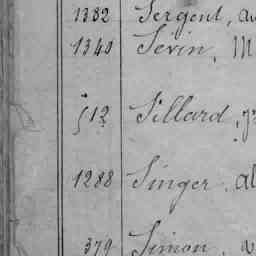 1382 Sergent,
1340 Sevin, M
512 Sillard,
1288 Singer, al
379 Simon,